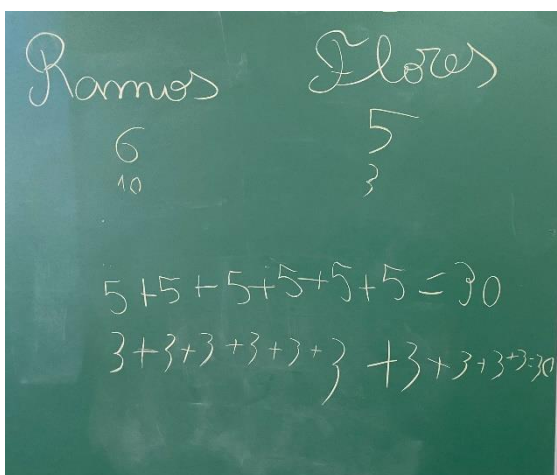 Ramos Flores
6 5
10 3
5+5+5+5+5+5=30
3+3+3+3+3+3+3+3+3+3=30